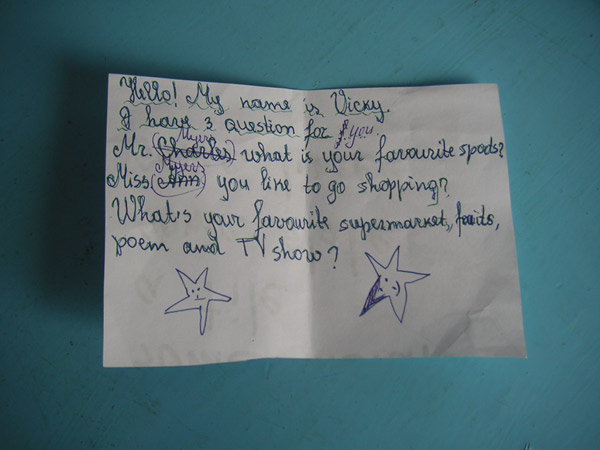 Hello! My name is Vicky.
I have 3 question for you.
Mr. Charles Myers what is your favourite sports?
Miss Ann Myers you like to go shopping?
What's your favourite supermarket,
poem and TV show?